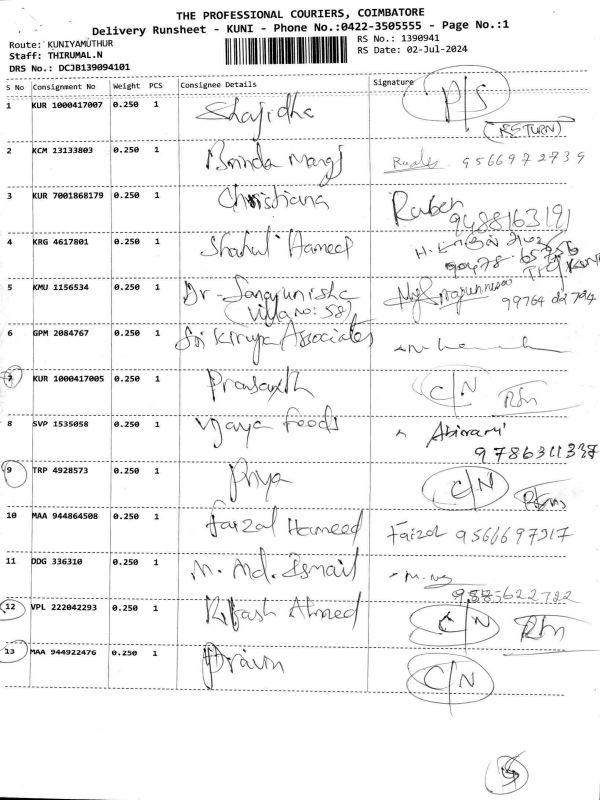 THE PROFESSIONAL COURIERS, COIMBATORE
Delivery Runsheet - KUNI - Phone No.:0422-3505555 - Page No.:1
Route: KUNIYAMUTHUR
RS No.: 1390941
Staff: THIRUMAL.N
RS Date: 02-Jul-2024
DRS No.: DCJB139094101
S No Consignment No Weight PCS Consignee Details Signature
1 KUR 1000417007 0.250 1 Shajidha P/S
(RETURN)
2 KCM 13133803 0.250 1 Brinda 9566972739
3 KUR 7001868179 0.250 1 Christiana Ruben
9488163191
4 KRG 4617801 0.250 1 Shahul Hameed
5 KMU 1156534 0.250 1 Dr-
(Villa No: 58) 99764
6 GPM 2084767 0.250 1 Sri Kirupa Associates
7 KUR 1000417005 0.250 1 Prasanth C/N Rtn
8 SVP 1535058 0.250 1 Vijaya Foods Abirami
9786311337
9 TRP 4928573 0.250 1 Priya C/N
10 MAA 944864508 0.250 1 Faizal Hameed Faizal 9566697317
11 DDG 336310 0.250 1 M. Md. Ismail
12 VPL 222042293 0.250 1 Ahmed C/N Rtn
13 MAA 944922476 0.250 1 C/N